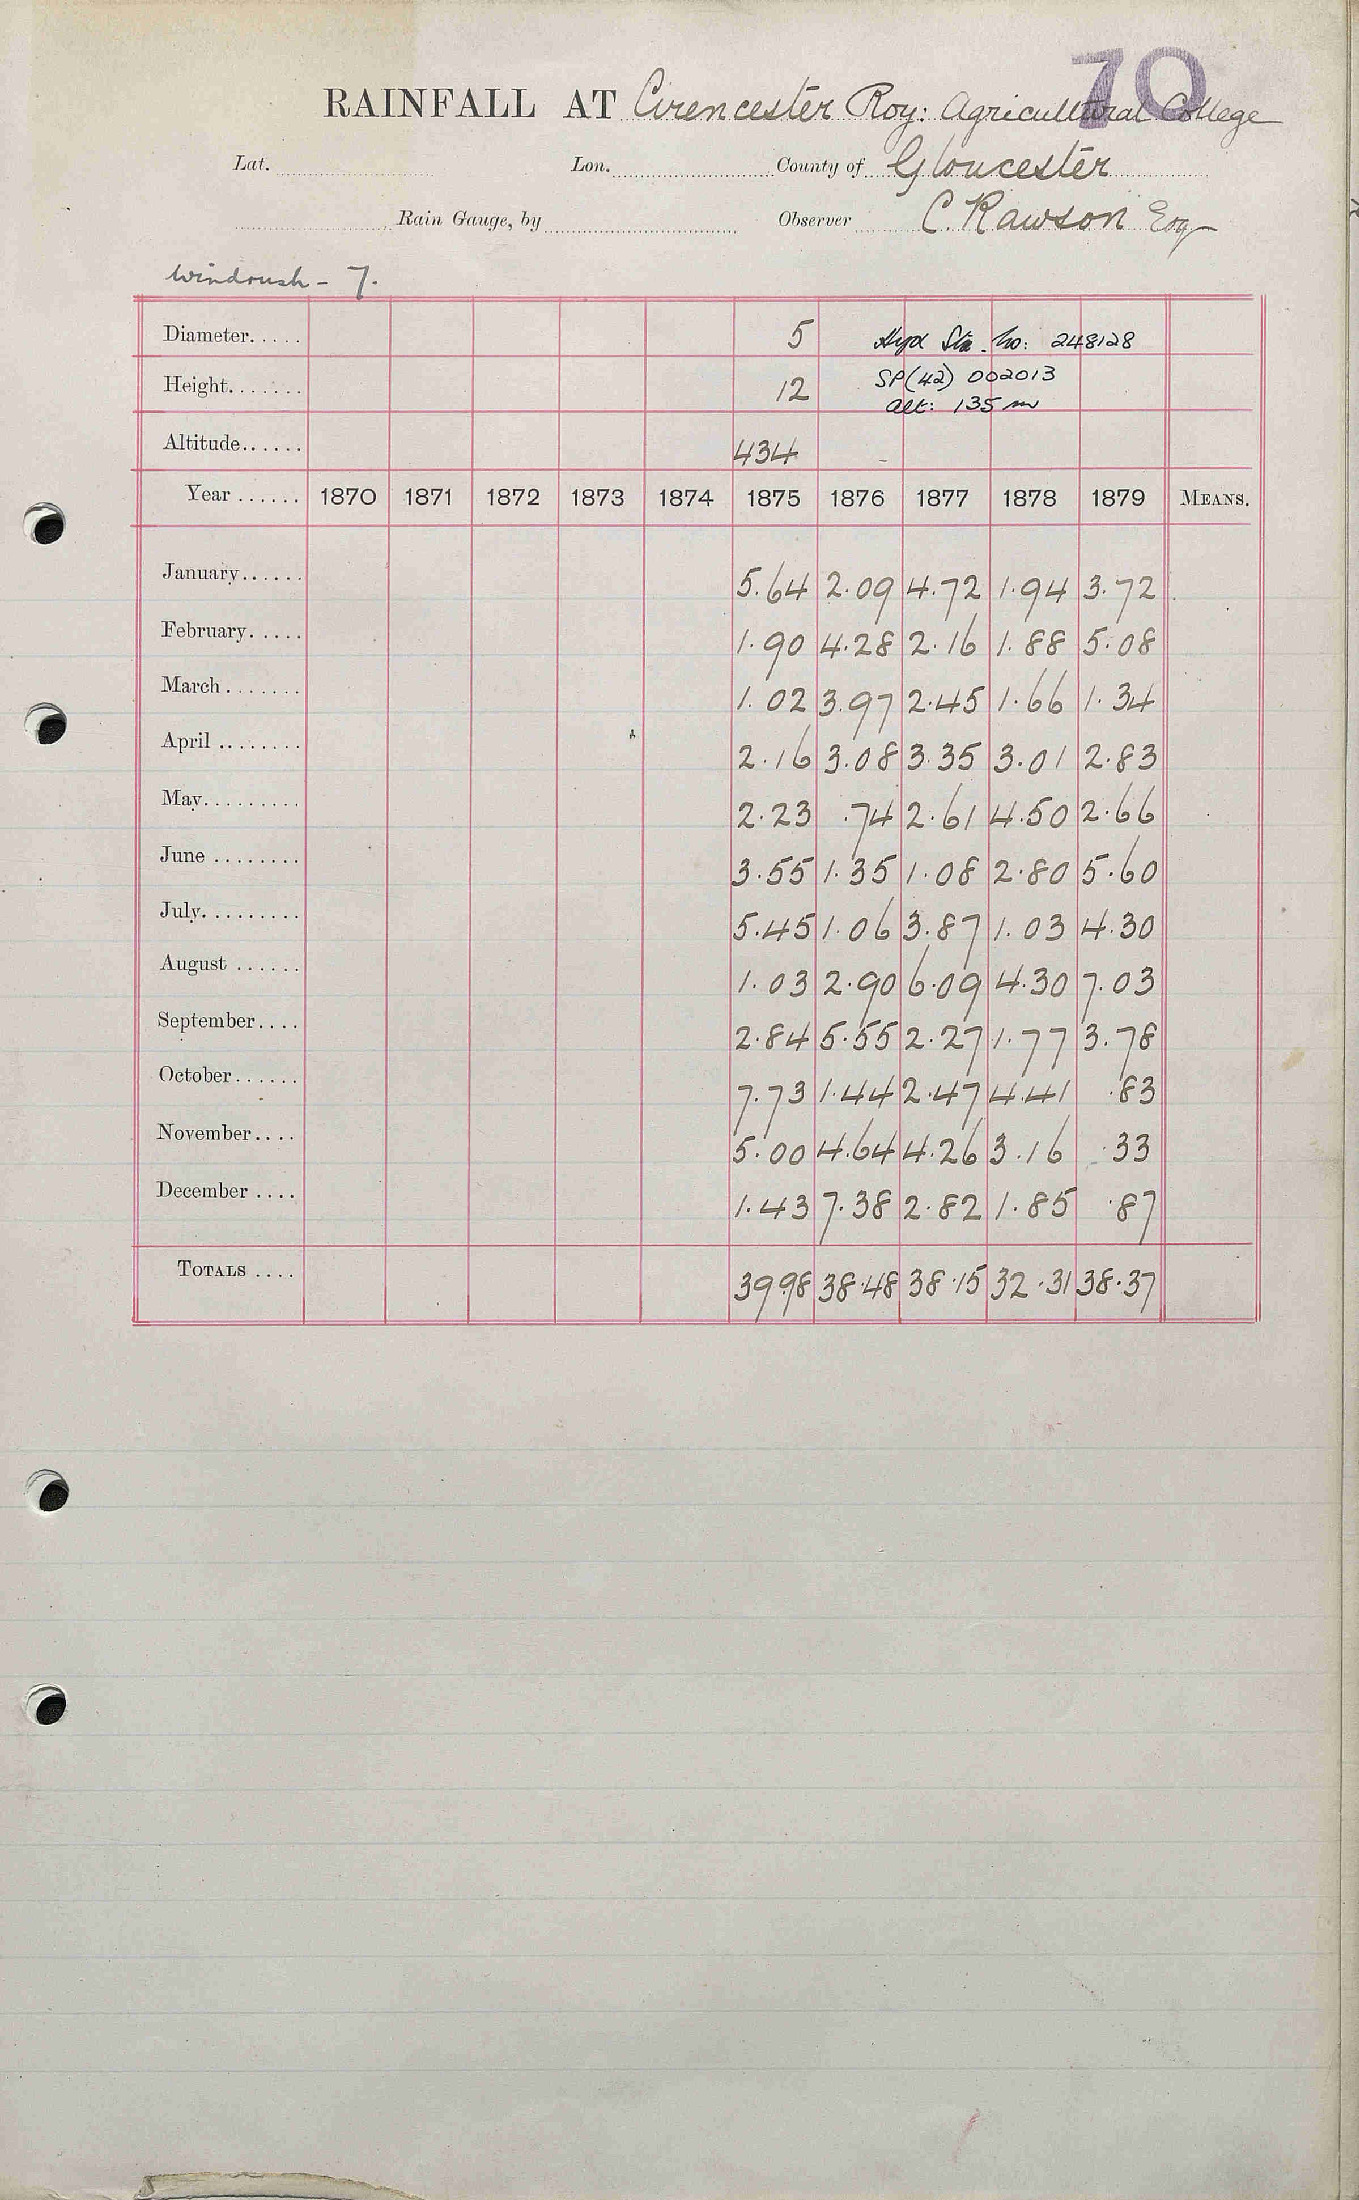 70
RAINFALL AT Cirencester Roy: Agricultural College
Lat. Lon. County of Gloucester
Rain Gauge, by Observer C. Rawson Esq
Windrush - 7.
Diameter..... 5 Hyd Stn. No: 248128
Height....... 12 SP(42) 002013
alt: 135 m
Altitude...... 434 -
Year ...... 1870 1871 1872 1873 1874 1875 1876 1877 1878 1879 MEANS.
January...... 5.64 2.09 4.72 1.94 3.72
February..... 1.90 4.28 2.16 1.88 5.08
March ....... 1.02 3.97 2.45 1.66 1.34
April ........ 2.16 3.08 3.35 3.01 2.83
May......... 2.23 .74 2.61 4.50 2.66
June ........ 3.55 1.35 1.08 2.80 5.60
July......... 5.45 1.06 3.87 1.03 4.30
August ...... 1.03 2.90 6.09 4.30 7.03
September.... 2.84 5.55 2.27 1.77 3.78
October...... 7.73 1.44 2.47 4.41 .83
November.... 5.00 4.64 4.26 3.16 .33
December .... 1.43 7.38 2.82 1.85 .87
TOTALS .... 39.98 38.48 38.15 32.31 38.37